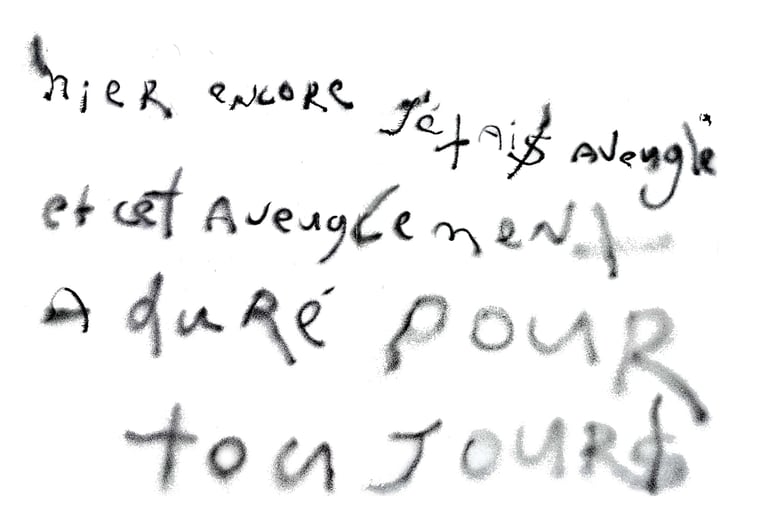 hier encore J'étais Aveugle
et cet Aveuglement
A duré pour
touJours